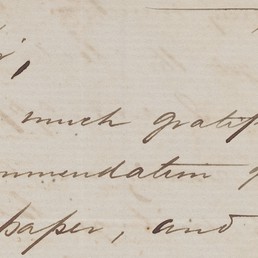 much gratif
mmendation
paper, and